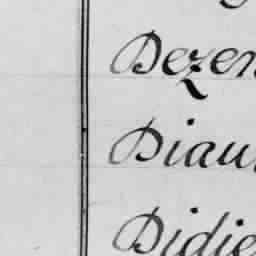 Dezen
Diau
Didie